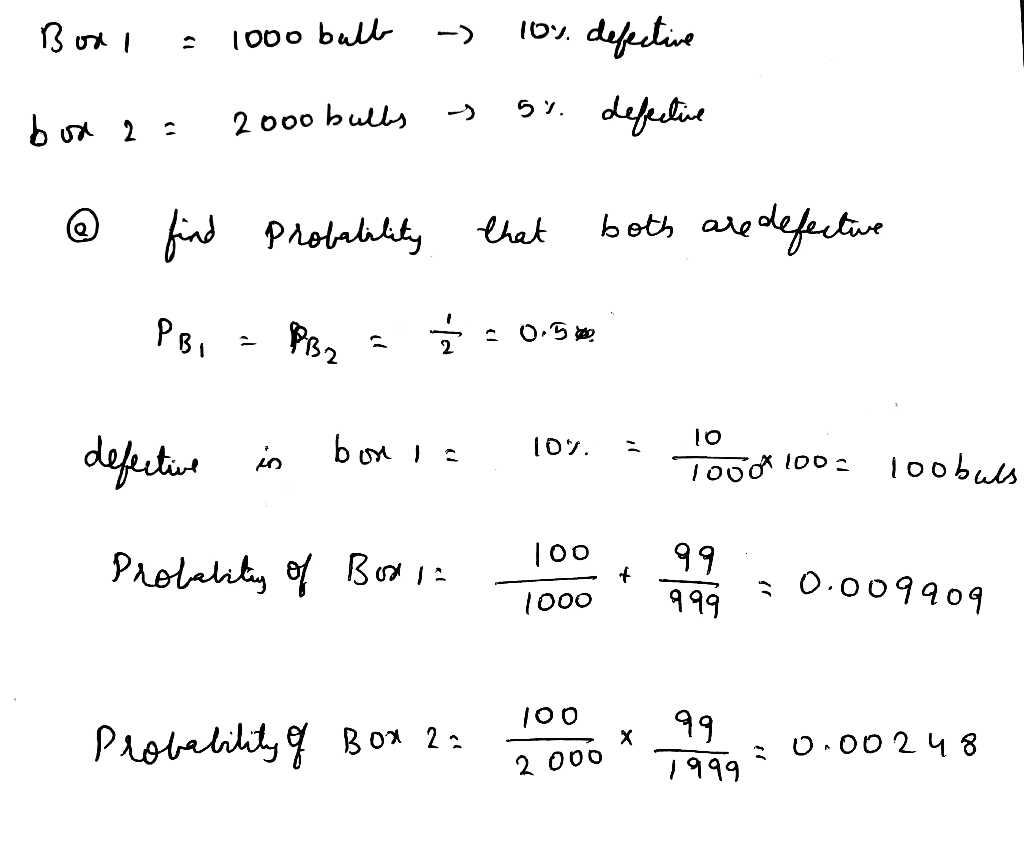 Box 1 = 1000 bulb -> 10% defective
box 2 = 2000 bulbs -> 5% defective
ⓐ find Probability that both are defective
P_B1 = P_B2 = 1/2 = 0.5
defective in box 1 = 10% = 10/1000 x 100 = 100 buls
Probability of Box 1 = 100/1000 + 99/999 = 0.009909
Probability of Box 2 = 100/2000 x 99/1999 = 0.00248